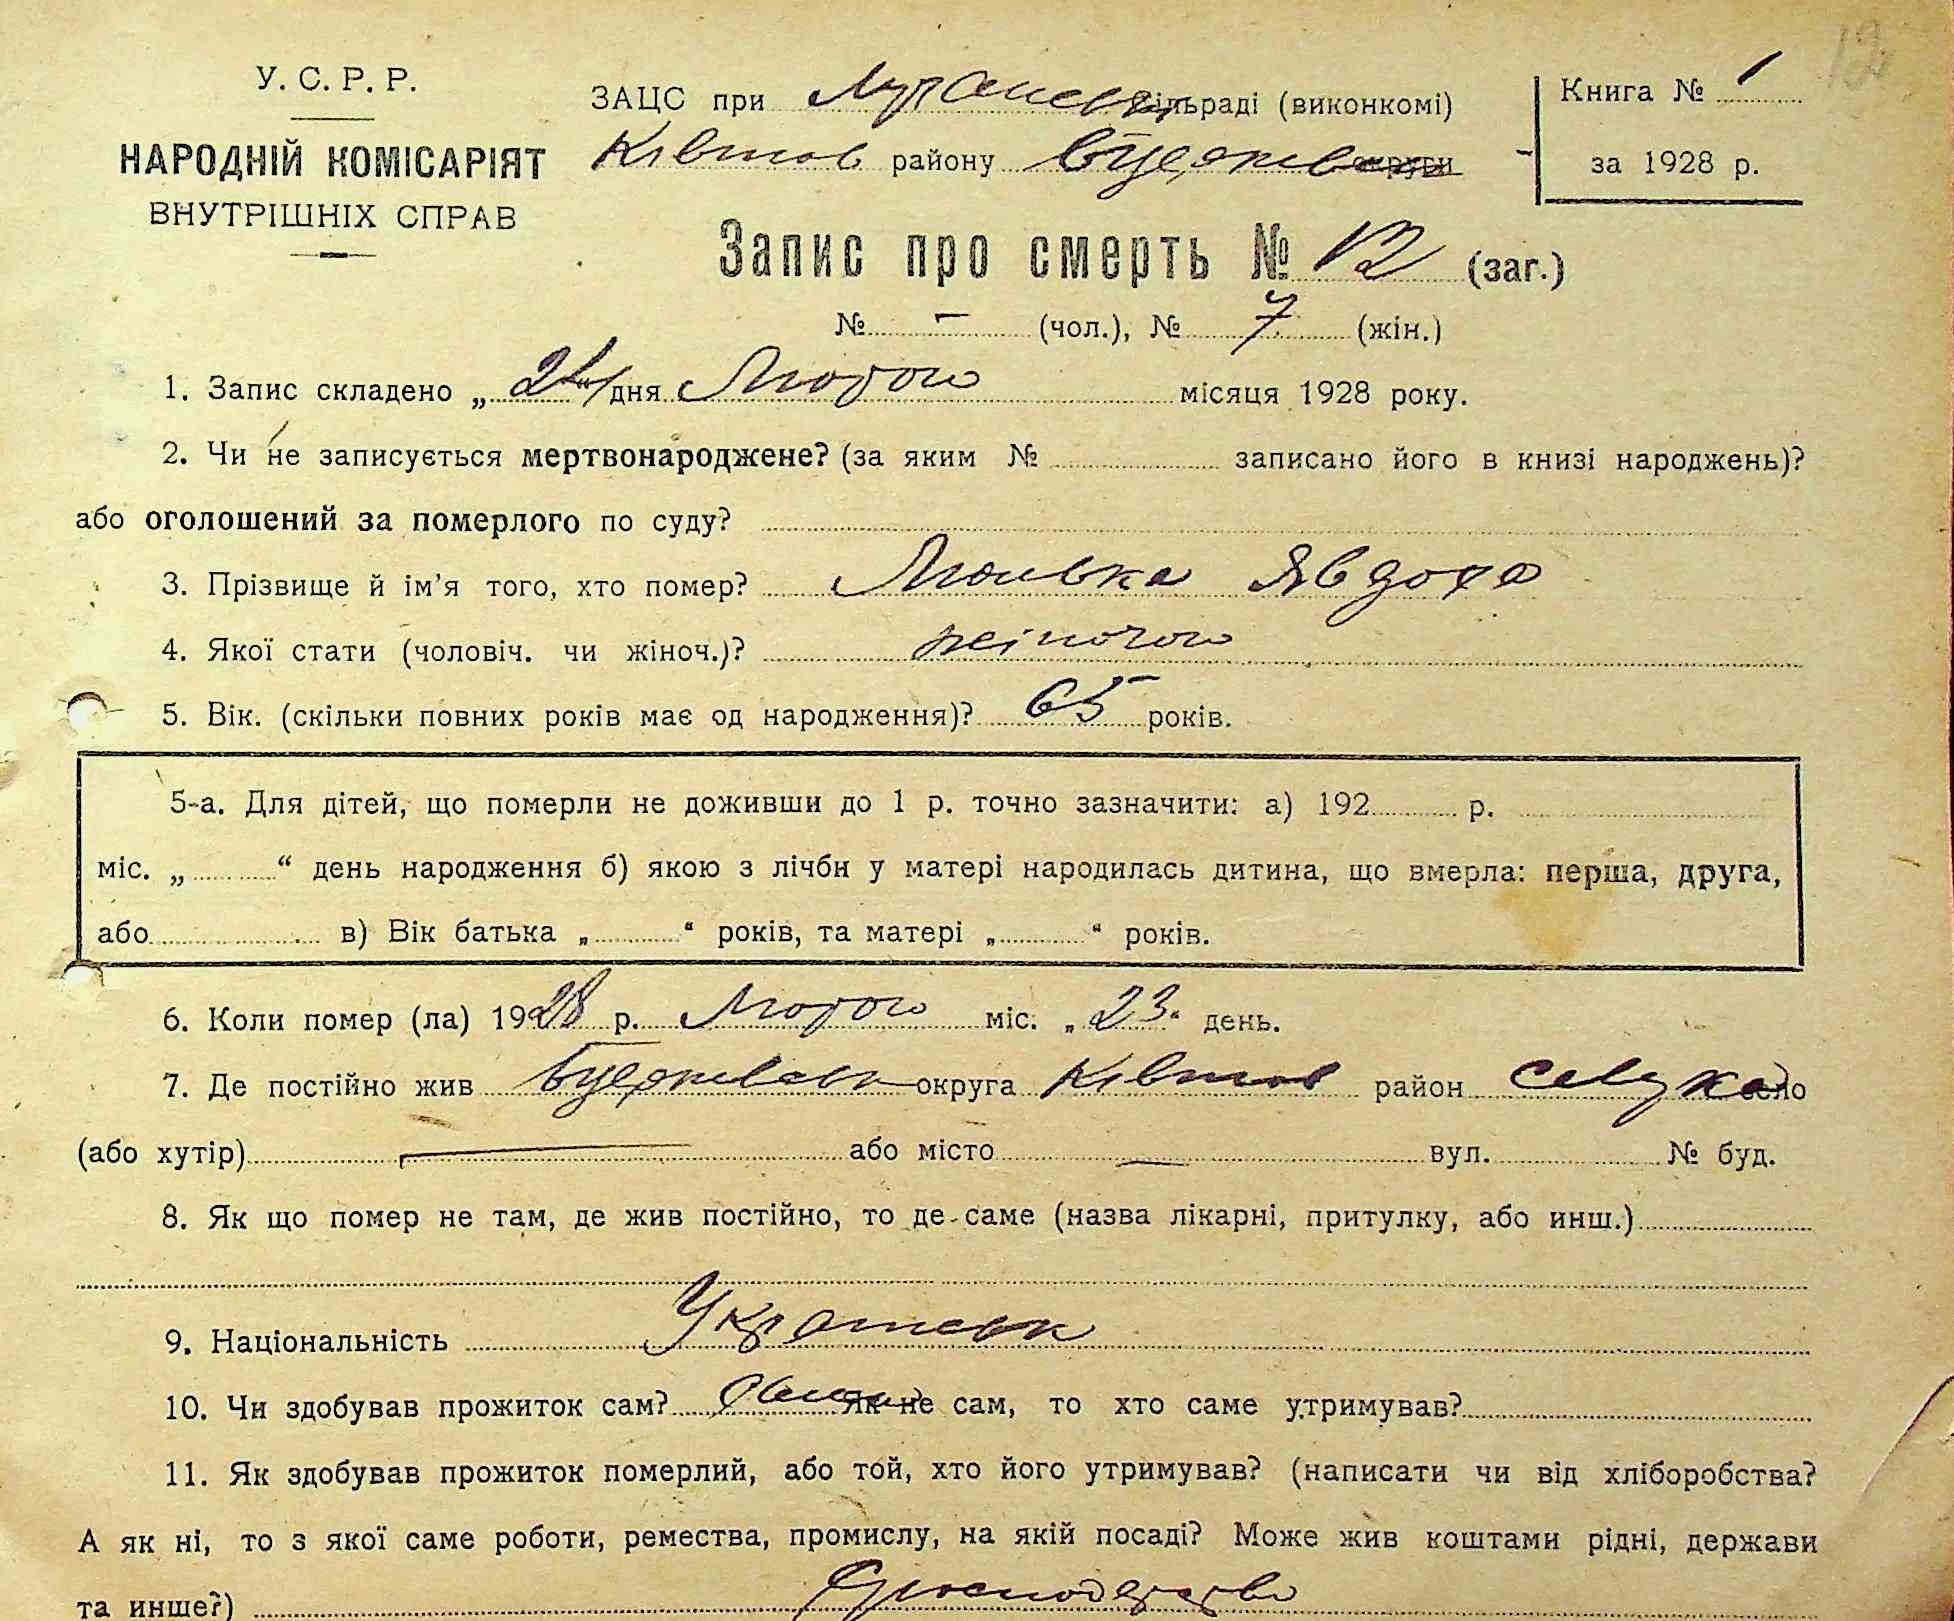 12
У. С. Р. Р.
НАРОДНІЙ КОМІСАРІЯТ
ВНУТРІШНІХ СПРАВ
ЗАЦС при сільраді (виконкомі)
району округи
Книга № 1
за 1928 р.
Запис про смерть № 12 (заг.)
№ – (чол.), № 7 (жін.)
1. Запис складено „24“ дня Лютого місяця 1928 року.
2. Чи не записується мертвонароджене? (за яким № записано його в книзі народжень)?
або оголошений за померлого по суду?
3. Прізвище й ім’я того, хто помер? Люлька Явдоха
4. Якої стати (чоловіч. чи жіноч.)? жіночою
5. Вік. (скільки повних років має од народження)? 65 років.
5-а. Для дітей, що померли не доживши до 1 р. точно зазначити: а) 192 р.
міс. „ “ день народження б) якою з лічби у матері народилась дитина, що вмерла: перша, друга,
або в) Вік батька „ “ років, та матері „ “ років.
6. Коли помер (ла) 1928 р. Лютого міс. „23“ день.
7. Де постійно жив округа район село
(або хутір) — або місто — вул. № буд.
8. Як що помер не там, де жив постійно, то де-саме (назва лікарні, притулку, або инш.)
9. Національність Українськ
10. Чи здобував прожиток сам? Як не сам, то хто саме утримував?
11. Як здобував прожиток померлий, або той, хто його утримував? (написати чи від хліборобства?
А як ні, то з якої саме роботи, ремества, промислу, на якій посаді? Може жив коштами рідні, держави
та инше?)